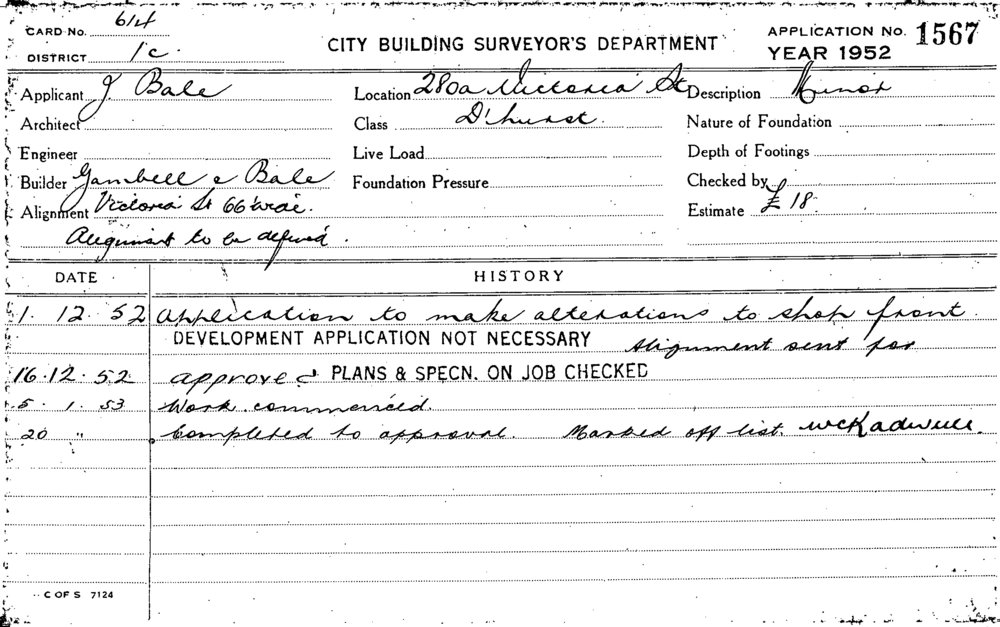 CARD No. 614
DISTRICT 1c.
CITY BUILDING SURVEYOR'S DEPARTMENT
APPLICATION No. 1567
YEAR 1952
Applicant J Bale
Location 280a Victoria St
Description Minor
Architect
Class D'hurst.
Nature of Foundation
Engineer
Live Load
Depth of Footings
Builder Gambell & Bale
Foundation Pressure
Checked by
Alignment Victoria St 66' wide.
Estimate £18
Alignment to be defined.
DATE HISTORY
1. 12. 52 Application to make alterations to shop front.
DEVELOPMENT APPLICATION NOT NECESSARY Alignment sent for
16.12.52 approved PLANS & SPECN. ON JOB CHECKED
5. 1. 53 Work commenced.
20 " Completed to approval. Marked off list.
C OF S 7124